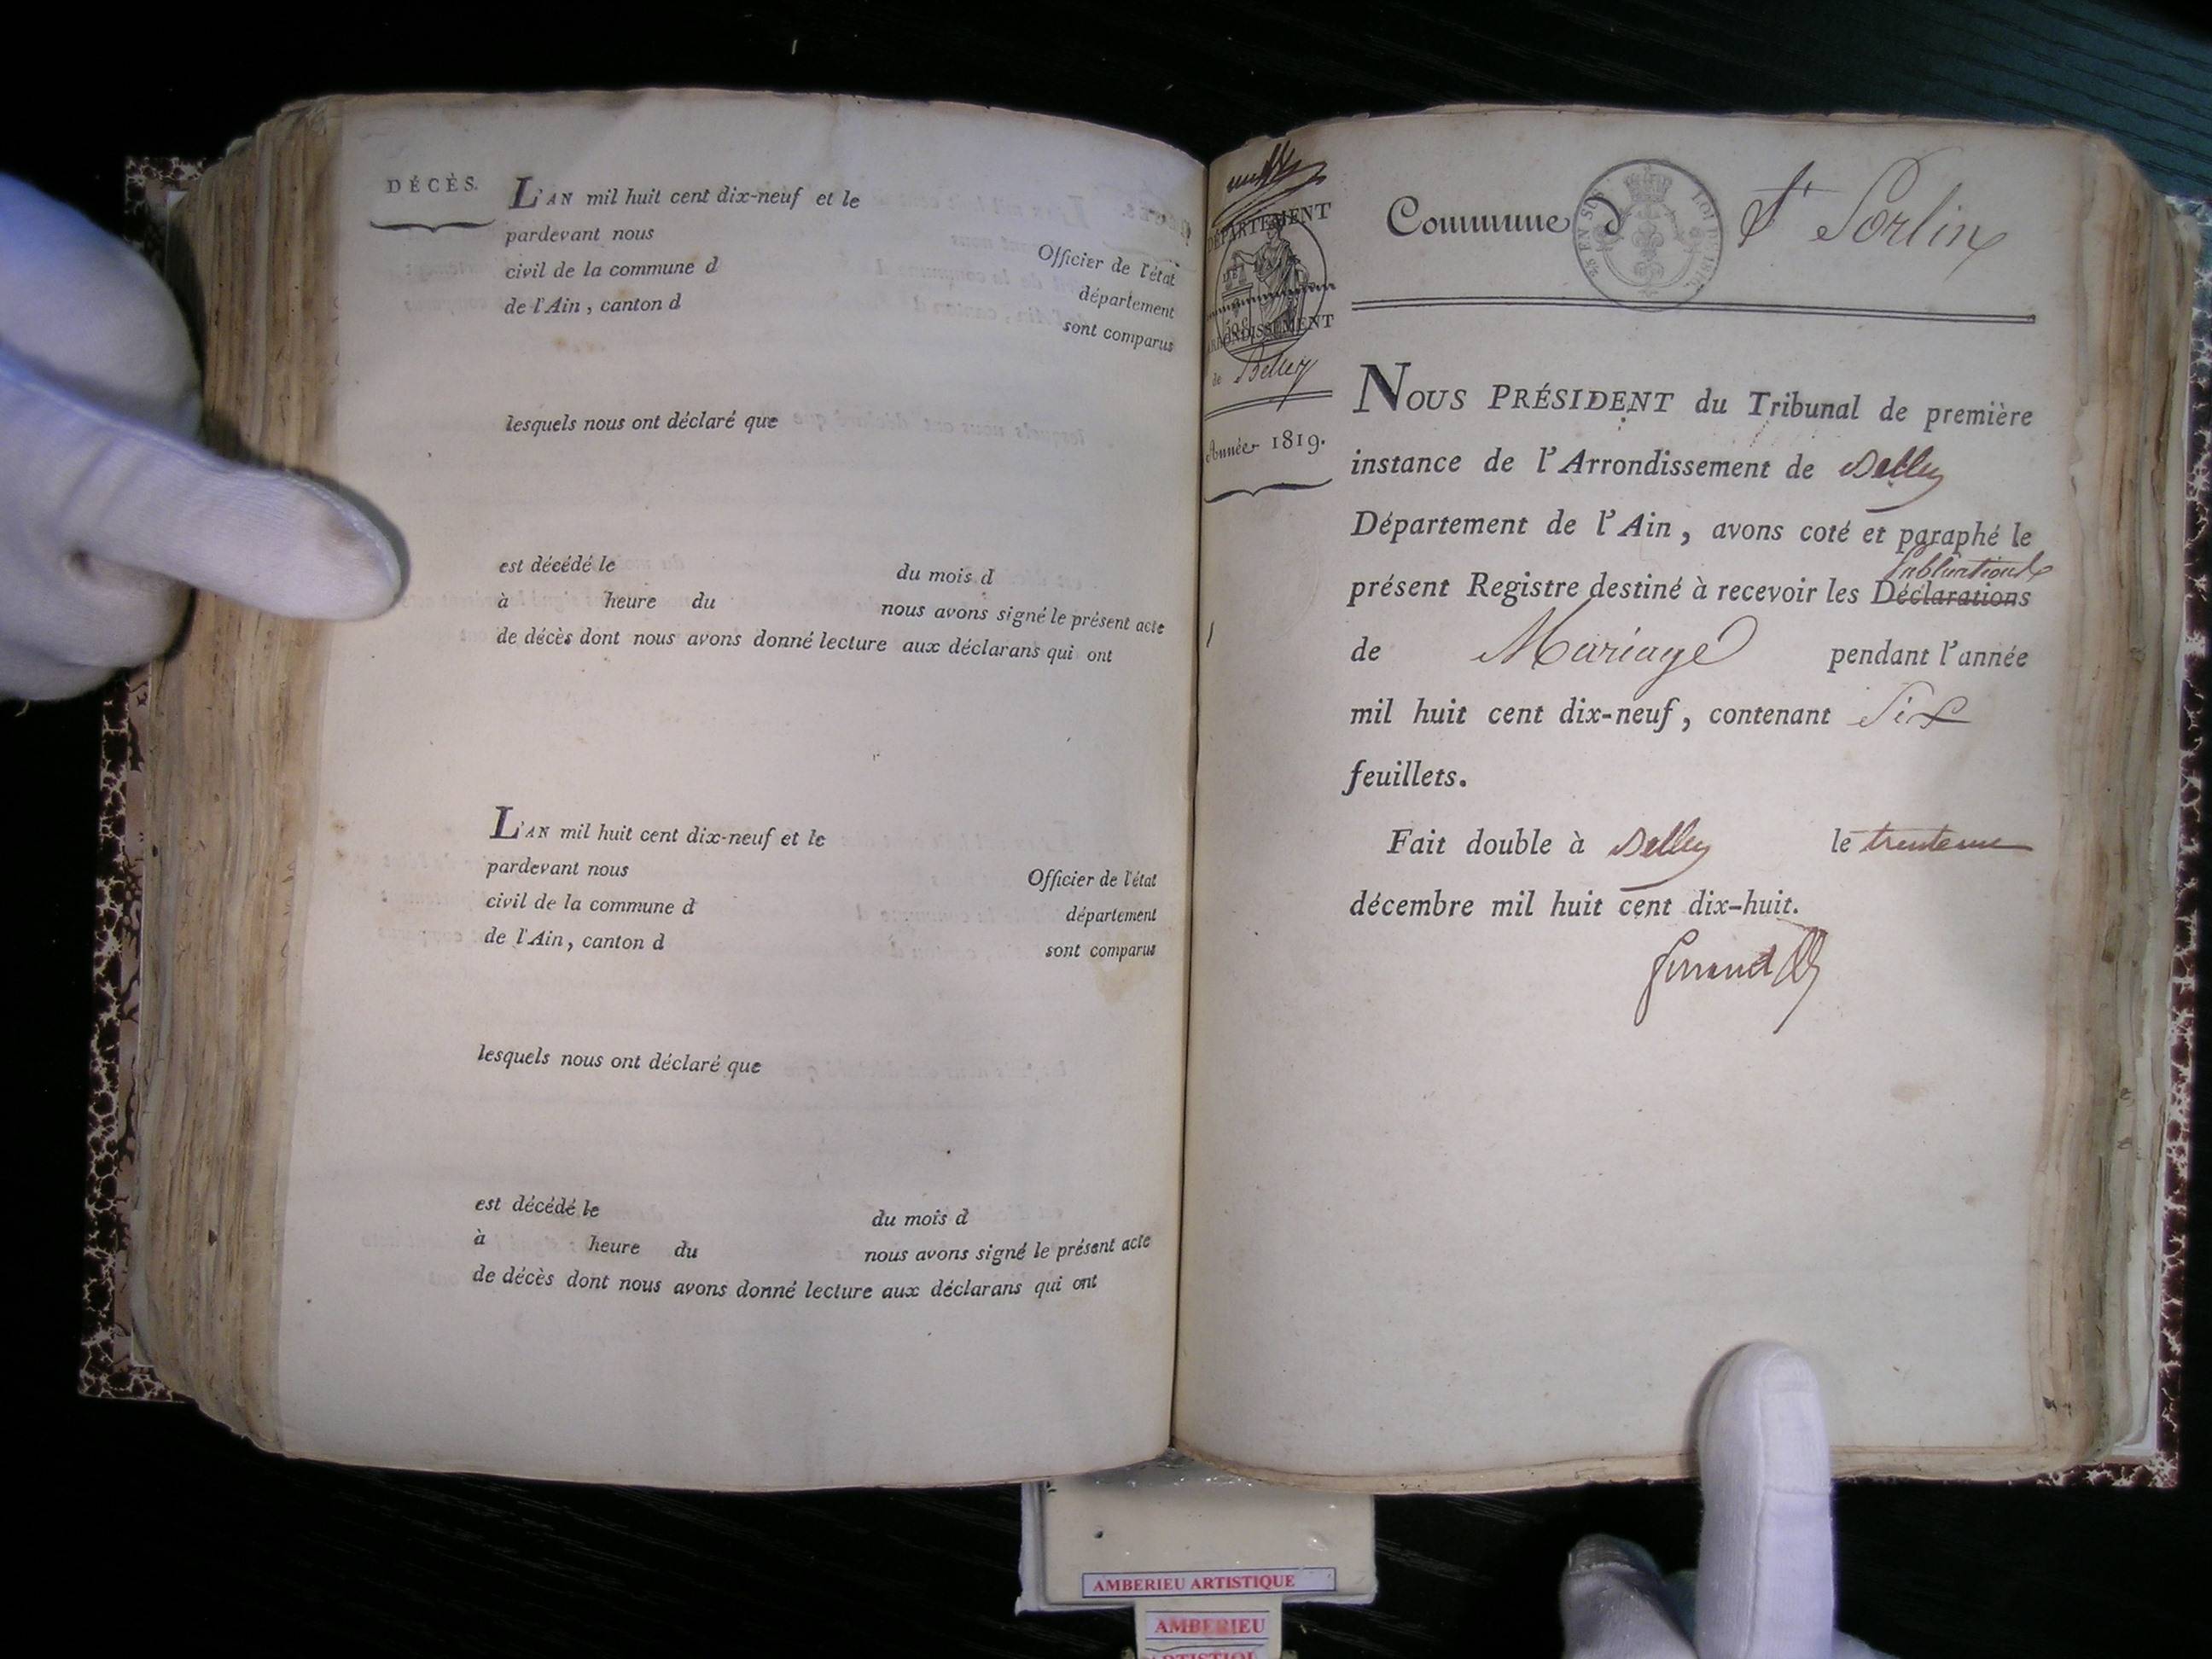 DÉCÈS.
L'AN mil huit cent dix-neuf et le
pardevant nous
Officier de l'état
civil de la commune d
département
de l'Ain, canton d
sont comparus
lesquels nous ont déclaré que
est décédé le du mois d
à heure du nous avons signé le présent acte
de décès dont nous avons donné lecture aux déclarans qui ont
L'AN mil huit cent dix-neuf et le
pardevant nous Officier de l'état
civil de la commune d département
de l'Ain, canton d sont comparus
lesquels nous ont déclaré que
est décédé le du mois d
à heure du nous avons signé le présent acte
de décès dont nous avons donné lecture aux déclarans qui ont
DÉPARTEMENT
ARRONDISSEMENT
de Belley
Année 1819.
Commune d St Sorlin
NOUS PRÉSIDENT du Tribunal de première
instance de l'Arrondissement de Belley
Département de l'Ain, avons coté et paraphé le
présent Registre destiné à recevoir les Déclarations
de Mariage pendant l'année
mil huit cent dix-neuf, contenant Six
feuillets.
Fait double à Belley le trente un
décembre mil huit cent dix-huit.
AMBERIEU ARTISTIQUE
AMBERIEU
ARTISTIQUE